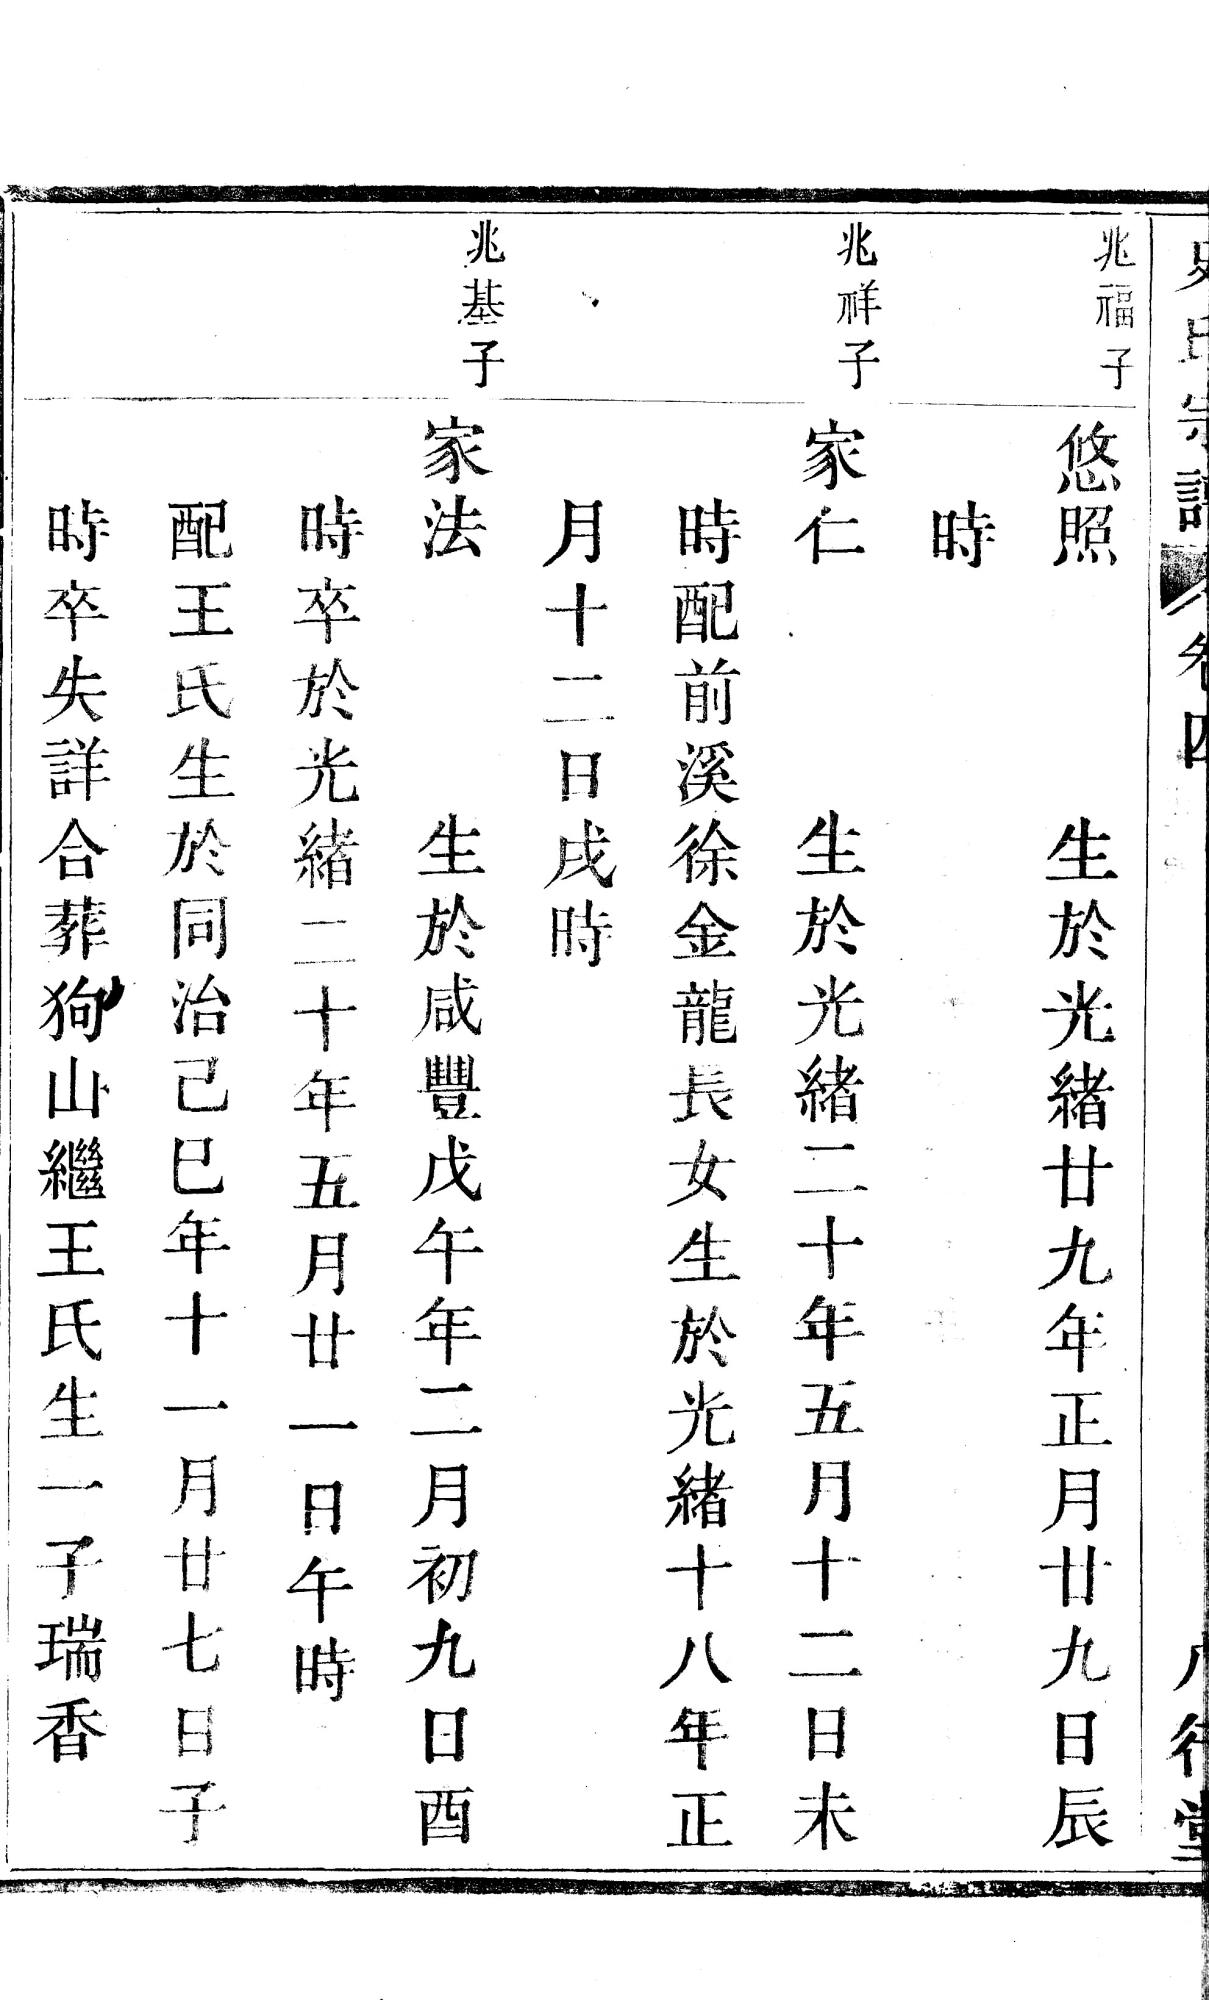 史氏宗譜 卷四
兆福子
悠照 生於光緒廿九年正月廿九日辰
時
兆祥子
家仁 生於光緒二十年五月十二日未
時配前溪徐金龍長女生於光緒十八年正
月十二日戌時
兆基子
家法 生於咸豐戊午年二月初九日酉
時卒於光緒二十年五月廿一日午時
配王氏生於同治己巳年十一月廿七日子
時卒失詳合葬狗山繼王氏生一子瑞香